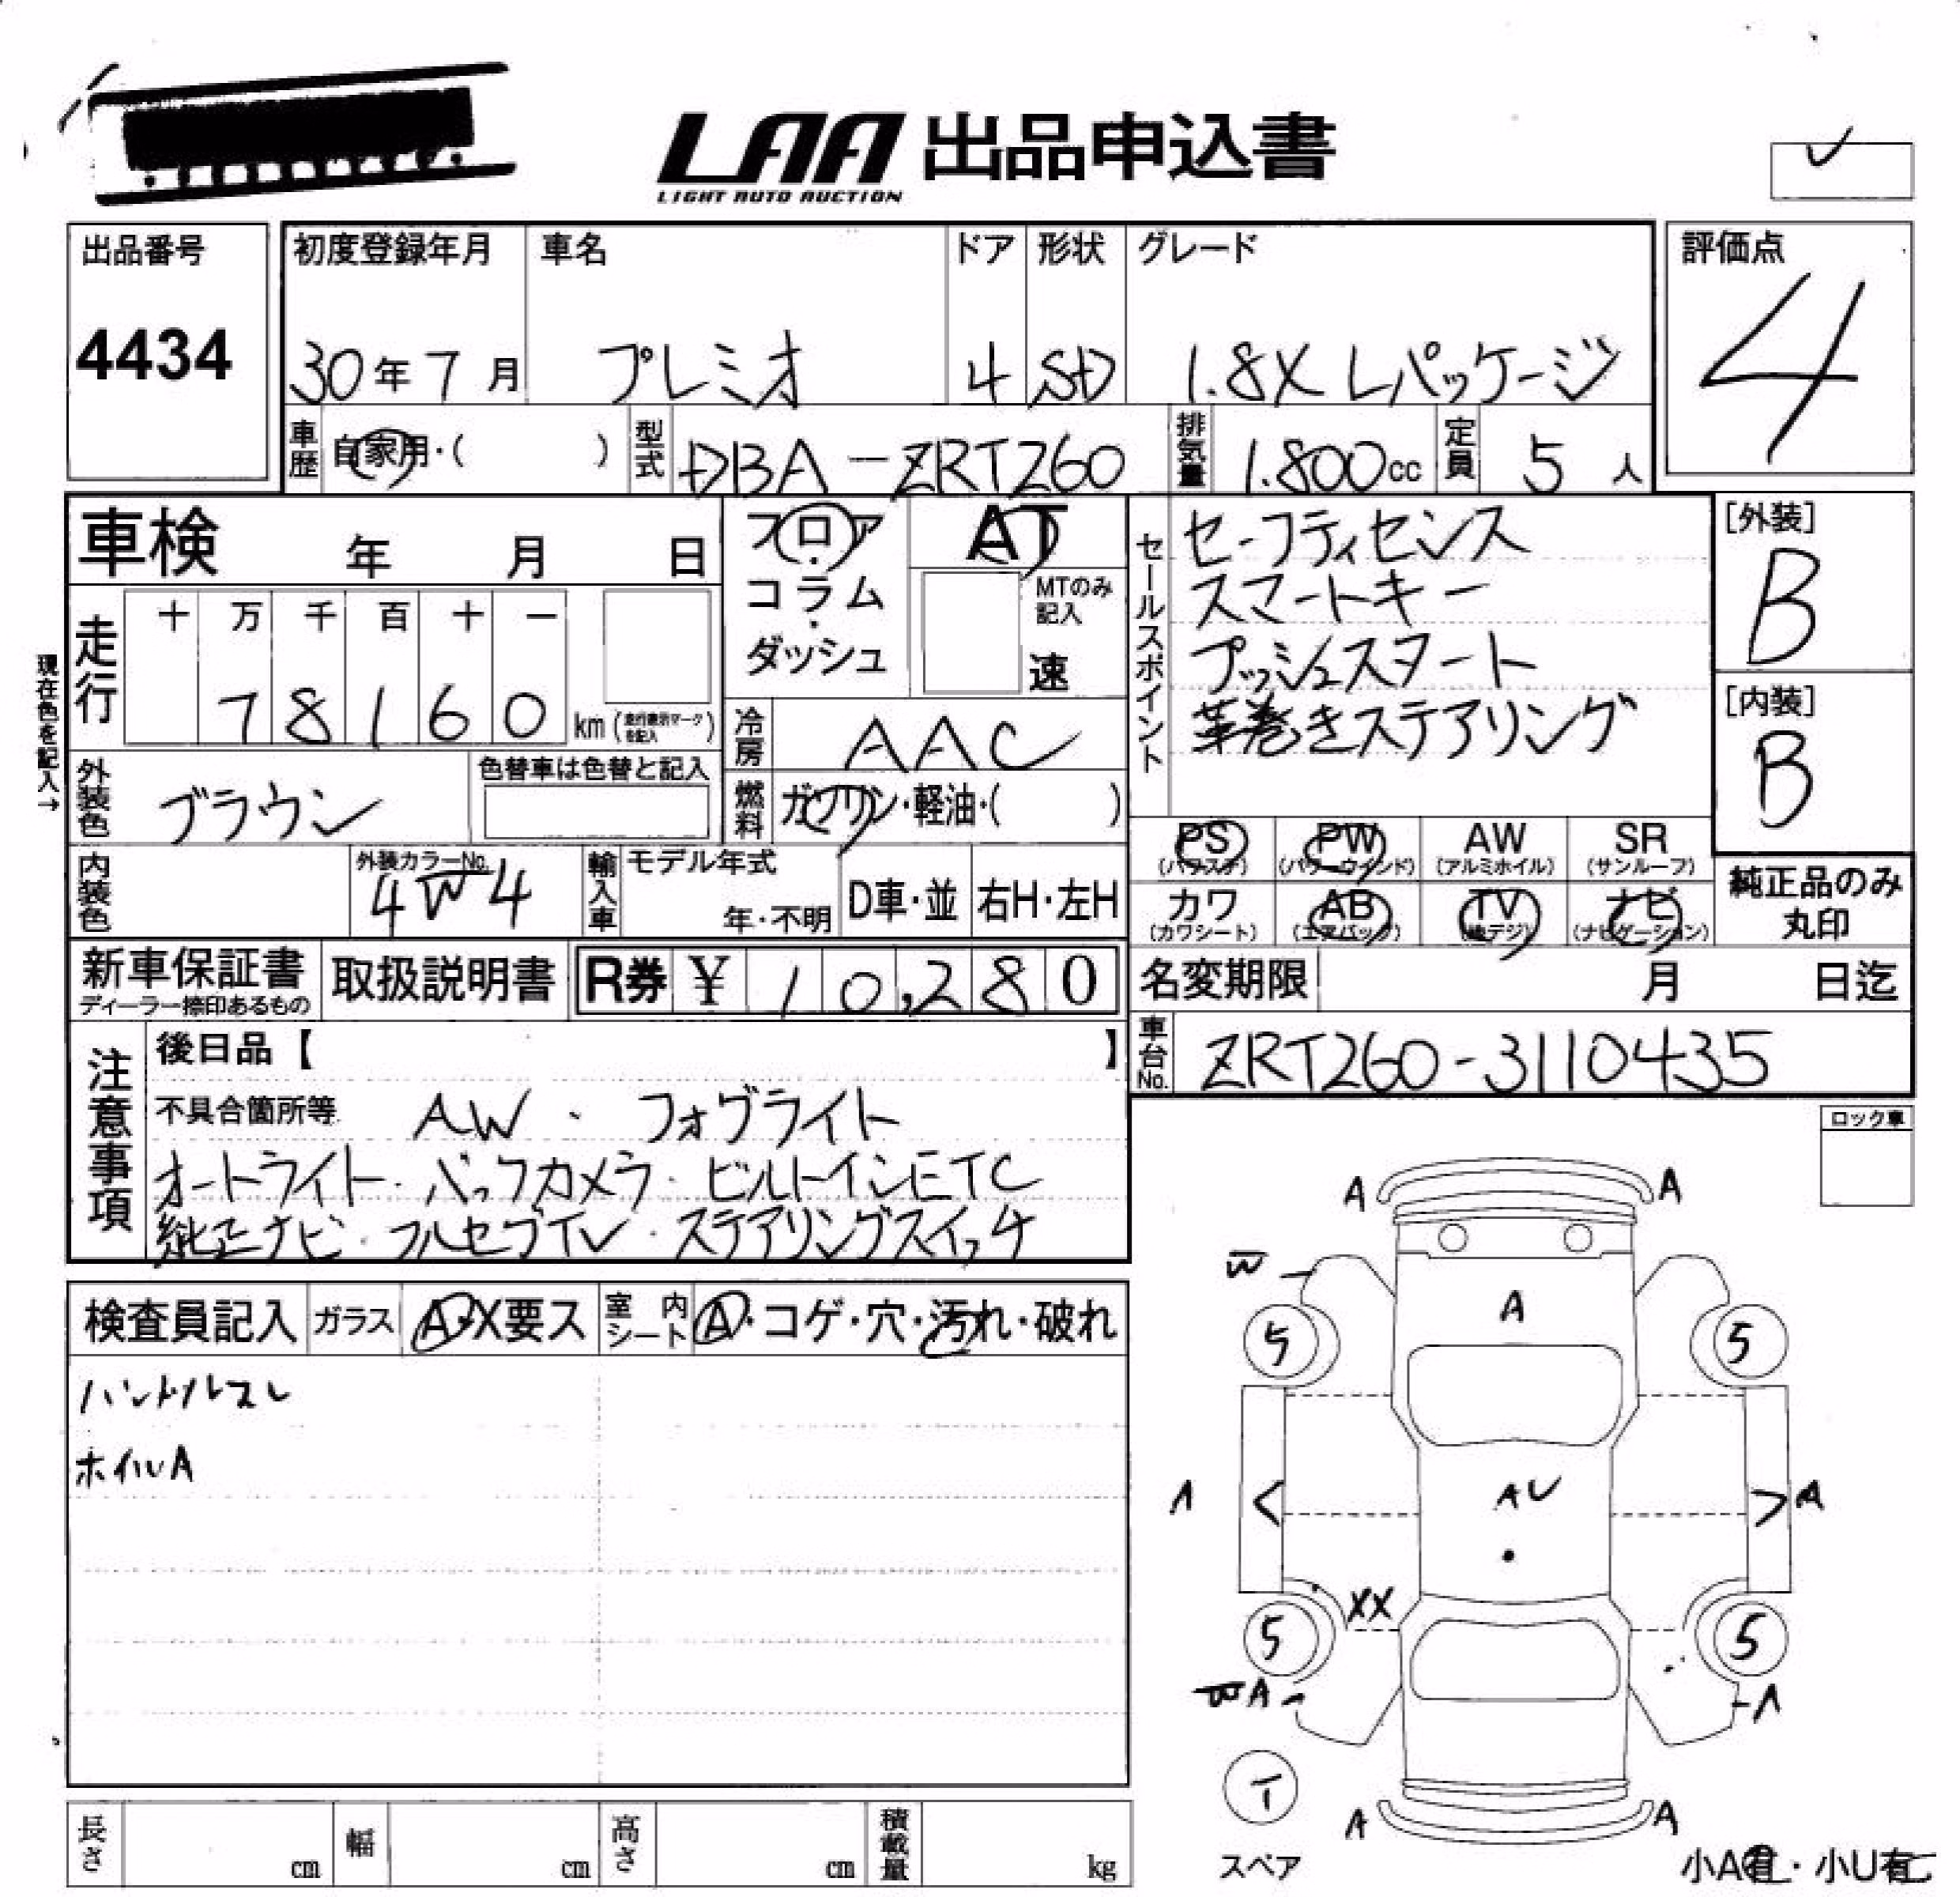 LAA 出品申込書
LIGHT AUTO AUCTION
出品番号
4434
初度登録年月
30年7月
車名
プレミオ
ドア
4
形状
SD
グレード
1.8X Lパッケージ
評価点
4
車歴
自家用・( )
型式
DBA-ZRT260
排気量
1.800cc
定員
5人
車検 年 月 日
フロア・コラム・ダッシュ
AT
MTのみ記入
速
セールスポイント
セーフティセンス
スマートキー
プッシュスタート
革巻きステアリング
[外装]
B
[内装]
B
現在色を記入→
走行
十 万 千 百 十 一
7 8 1 6 0 km
(走行表示マークを記入)
冷房
AAC
外装色
ブラウン
色替車は色替と記入
燃料
ガソリン・軽油・( )
PS
(パワステ)
PW
(パワーウインド)
AW
(アルミホイル)
SR
(サンルーフ)
カワ
(カワシート)
AB
(エアバッグ)
TV
(地デジ)
ナビ
(ナビゲーション)
純正品のみ
丸印
内装色
外装カラーNo.
4W4
輸入車
モデル年式
年・不明
D車・並
右H・左H
新車保証書
ディーラー捺印あるもの
取扱説明書
R券 ¥ 10,280
名変期限 月 日迄
車台No.
ZRT260-3110435
注意事項
後日品【 】
不具合箇所等 AW・フォグライト
オートライト・バックカメラ・ビルトインETC
純正ナビ・フルセグTV・ステアリングスイッチ
ロック車
検査員記入
ガラス
A・X要ス
室内シート
A・コゲ・穴・汚れ・破れ
ハンドルスレ
ホイルA
A A
W
A
5 5
A AU A
XX
5 5
WA A
T
スペア
A A
長さ cm
幅 cm
高さ cm
積載量 kg
小A有・小U有